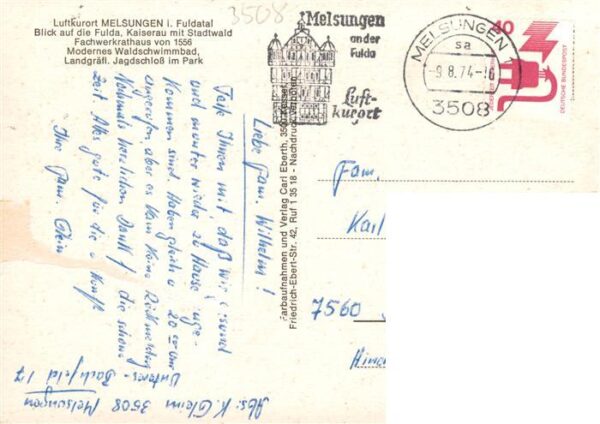 Luftkurort MELSUNGEN i. Fuldatal
Blick auf die Fulda, Kaiserau mit Stadtwald
Fachwerkrathaus von 1556
Modernes Waldschwimmbad,
Landgräfl. Jagdschloß im Park
3508
Melsungen
an der
Fulda
Luft-
kurort
MELSUNGEN 1
sa
-9.8.74-16
3508
40
DEUTSCHE BUNDESPOST
Liebe Fam. Wilhelm!
Teile Ihnen mit, daß wir gesund
und munter wieder zu Hause ange-
kommen sind. Haben gleich 20 00 Uhr
angerufen aber es kam keine Rückmeldung
Nochmals herzlichen Dank f. die schöne
Zeit Alles gute für die
Ihre Fam. Gleim
Abs. K. Gleim 3508 Melsungen
Unteres-Bachfeld 17
Farbaufnahmen und Verlag Carl Eberth, 3500 Kassel
Friedrich-Ebert-Str. 42, Ruf 1 35 18 - Nachdruck verboten
Fam.
Karl
7560